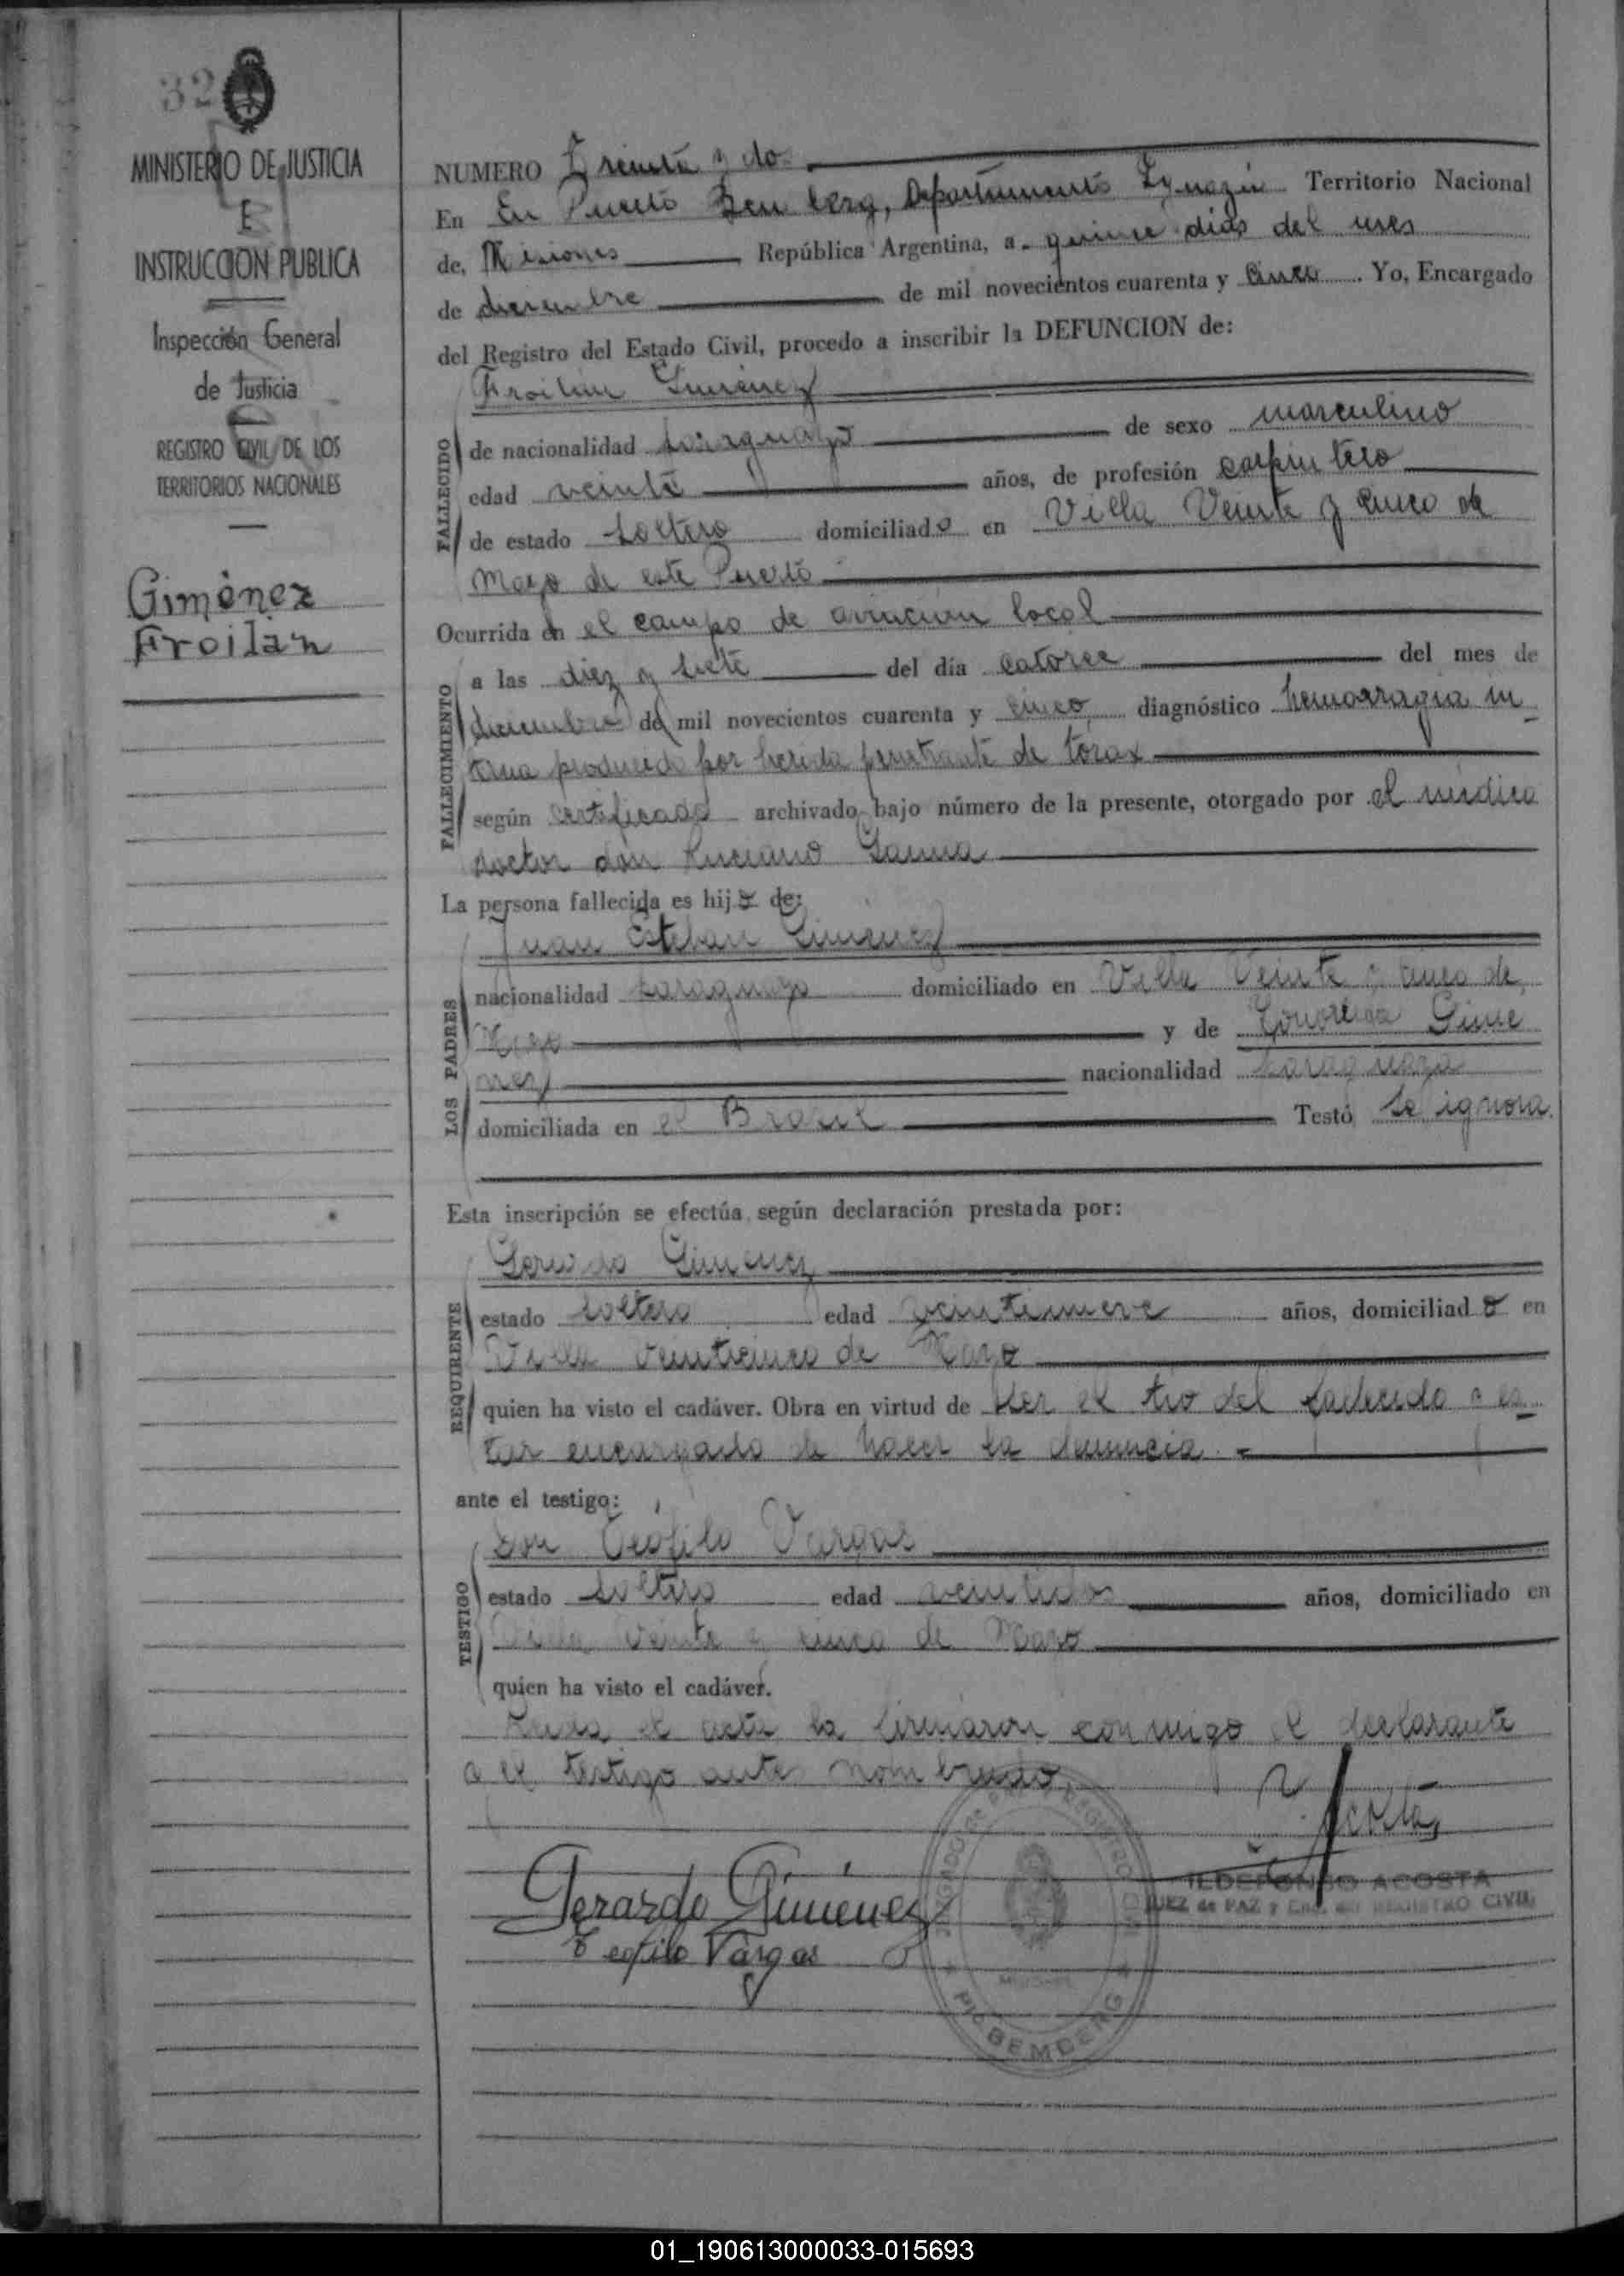 32
MINISTERIO DE JUSTICIA
E
INSTRUCCION PUBLICA
Inspección General
de Justicia
REGISTRO CIVIL DE LOS
TERRITORIOS NACIONALES
Giménez
Froilán
NUMERO Treinta y dos
En En Puerto Bemberg, Departamento Iguazú Territorio Nacional
de, Misiones República Argentina, a quince dias del mes
de diciembre de mil novecientos cuarenta y cinco. Yo, Encargado
del Registro del Estado Civil, procedo a inscribir la DEFUNCION de:
Froilán Giménez
FALLECIDO
de nacionalidad paraguayo de sexo masculino
edad veinte años, de profesión carpintero
de estado soltero domiciliado en Villa Veinte y cinco de
Mayo de este Puerto
Ocurrida en el campo de aviación local
FALLECIMIENTO
a las diez y siete del día catorce del mes de
diciembre de mil novecientos cuarenta y cinco, diagnóstico hemorragia in
terna producida por herida penetrante de tórax
según certificado archivado bajo número de la presente, otorgado por el médico
doctor don Luciano
La persona fallecida es hijo de:
Juan Esteban Giménez
LOS PADRES
nacionalidad paraguayo domiciliado en Villa Veinte y cinco de
Mayo y de Gime
nez nacionalidad paraguaya
domiciliada en el Brasil Testó se ignora.
Esta inscripción se efectúa según declaración prestada por:
Gerardo Giménez
REQUIRENTE
estado soltero edad veintinueve años, domiciliado en
Villa veinticinco de Mayo
quien ha visto el cadáver. Obra en virtud de ser el tio del fallecido y es
tar encargado de hacer la denuncia.
ante el testigo:
Don Teófilo Vargas
TESTIGO
estado soltero edad veintidos años, domiciliado en
Villa Veinte y cinco de Mayo
quien ha visto el cadáver.
Leida el acta la firmaron conmigo el declarante
y el testigo antes nombrado.
Acosta
ILDEFONSO ACOSTA
JUEZ de PAZ y Enc. del REGISTRO CIVIL
Gerardo Giménez
Teofilo Vargas
JUZGADO DE PAZ Y REGISTRO CIVIL
MISIONES
PTO BEMBERG
01_190613000033-015693